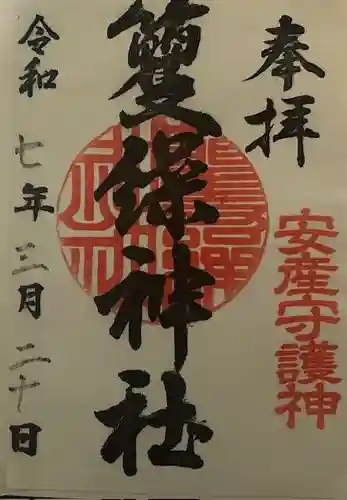 奉拝
神社
安産守護神
令和七年三月二十日